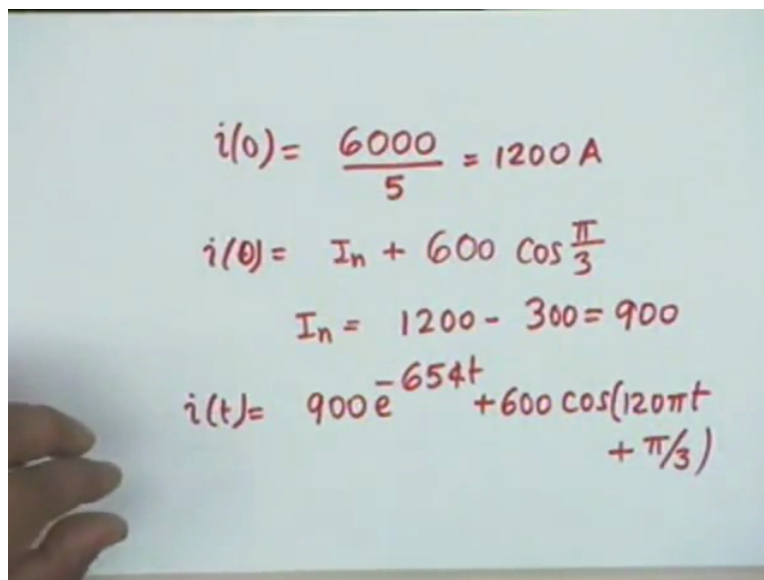 i(0) = 6000/5 = 1200 A
i(0) = In + 600 cos π/3
In = 1200 - 300 = 900
i(t) = 900 e^-654t + 600 cos(120πt
+ π/3)